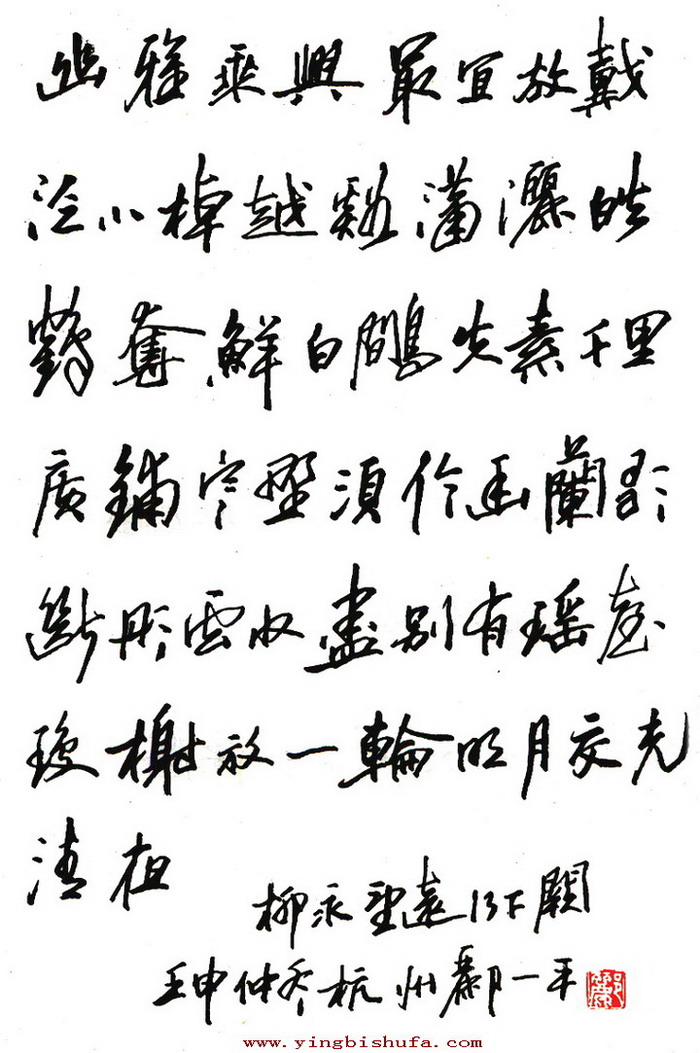 幽雅乘興最宜訪戴
泛小棹越谿瀟灑皓
鶴奪鮮白鷴失素千里
廣鋪寒壄須信幽蘭歌
斷彤雲收盡别有瑶臺
瓊榭放一輪明月交光
清夜
柳永望遠行下闋
壬申仲冬杭州酈一平
www.yingbishufa.com